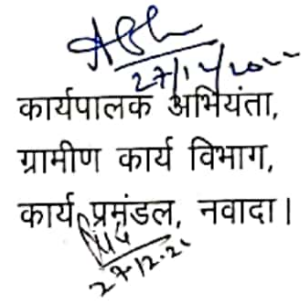 27/12/2022
कार्यपालक अभियंता,
ग्रामीण कार्य विभाग,
कार्य प्रमंडल, नवादा।
27.12.22